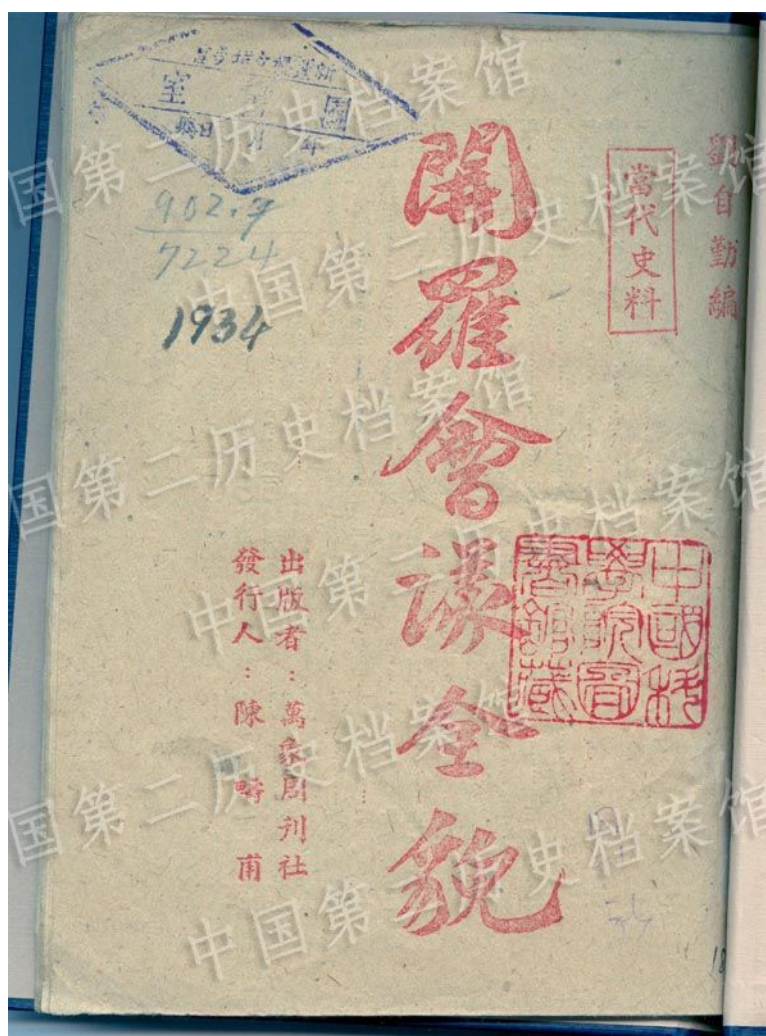 劉自勤編
當代史料
開羅會議全貌
出版者：萬象周刊社
發行人：陳疇甫
中國科
學院圖
書館藏
902.7
7224
1934
18
中国第二历史档案馆